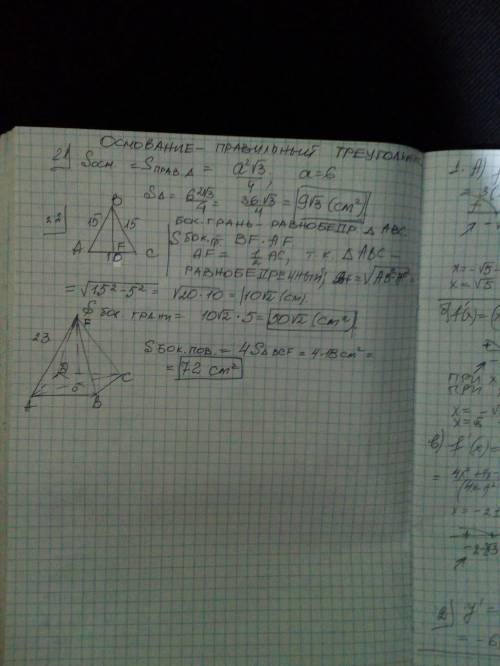 ОСНОВАНИЕ - ПРАВИЛЬНЫЙ ТРЕУГОЛЬНИК
21) Sосн = Sправ.Δ = a²√3/4, a=6
SΔ = 6²√3/4 = 36√3/4 = 9√3 (см²)
22)
B
15 15
A F C
10
БОК. ГРАНЬ - РАВНОБЕДР. Δ ABC
Sбок.гр. BF · AF.
AF = 1/2 AC, т.к. Δ ABC -
РАВНОБЕДРЕННЫЙ, BF = √AB²-AF² =
= √15²-5² = √20·10 = 10√2 (см).
S бок грани = 10√2 · 5 = 50√2 (см²)
23
S
F
D C
6
A B
Sбок.пов. = 4SΔBCF = 4·18см² =
= 72 см²
1. А)
x = -√5
x = √5
б) f'(x) =
ПРИ x
ПРИ
x = -√
x = 5
в) f'(x) =
x = -2
-2√3
2) y' =
= -6